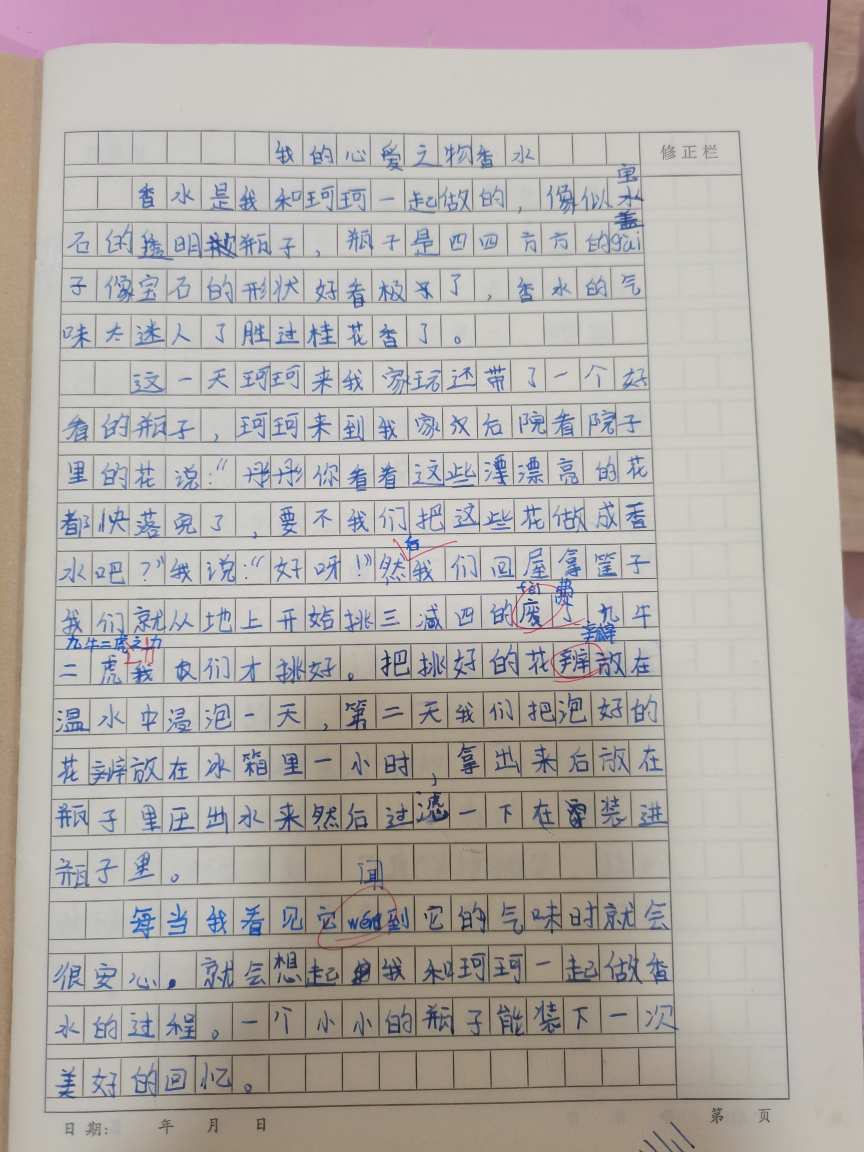 我的心爱之物香水
修正栏
宝
香水是我和珂珂一起做的，像似水
盖
石的透明瓶子，瓶子是四四方方的gai
子像宝石的形状好看极了，香水的气
味太迷人了胜过桂花香了。
这一天珂珂来我家玩还带了一个好
看的瓶子，珂珂来到我家后院看院子
里的花说：“丹彤你看看这些漂漂亮的花
都快落完了，要不我们把这些花做成香
后
水吧？”我说：“好呀！”然我们回屋拿筐子
fei 费
我们就从地上开始挑三减四的废了九牛
九牛二虎之力 瓣
二虎我们才挑好。把挑好的花辨放在
温水中浸泡一天，第二天我们把泡好的
花辨放在冰箱里一小时，拿出来后放在
瓶子里压出水来然后过滤一下在装进
瓶子里。
闻
每当我看见它wen到它的气味时就会
很安心。就会想起我和珂珂一起做香
水的过程。一个小小的瓶子能装下一次
美好的回忆。
日期: 年 月 日 第 页